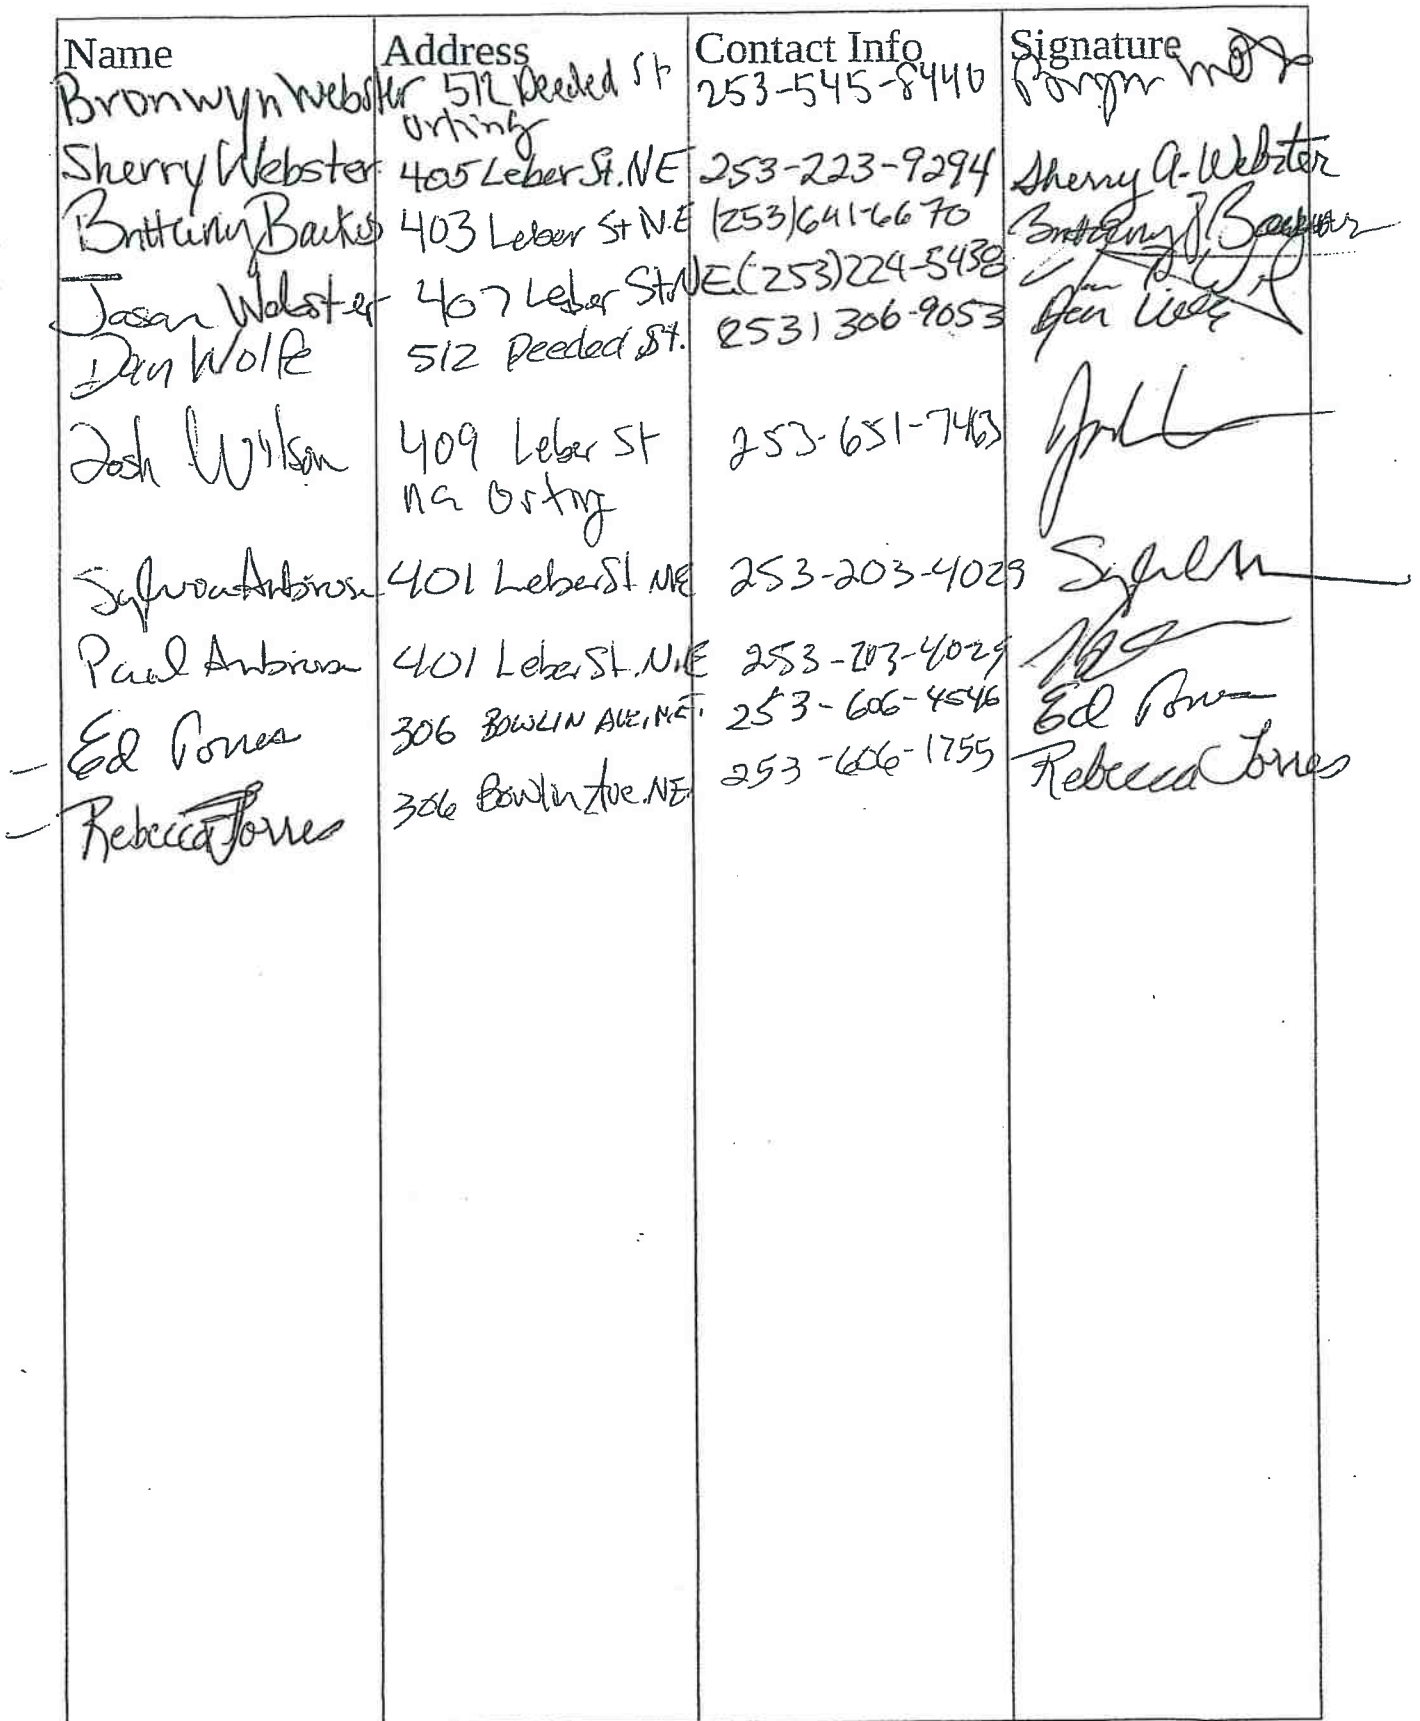 Name Address Contact Info Signature
Bronwyn Webster 512 Deeded St 253-545-8440
Orting
Sherry Webster 405 Leber St. NE 253-223-9294 Sherry A. Webster
Brittany 403 Leber St N.E (253)641-6670 Brittany J
Jasan Webster 407 Leber St NE (253)224-5438
Dan Wolfe 512 Deeded St. 253) 306-9053
Josh Wilson 409 Leber St 253-651-7463
Orting
Sylvia Ambrose 401 Leber St NE 253-203-4029
Paul Ambrose 401 Leber St. N.E 253-203-4029
Ed Torres 306 BOWLIN AVE, N.E. 253-606-4546 Ed Torres
Rebecca Torres 306 Bowlin Ave. NE 253-606-1755 Rebecca Torres